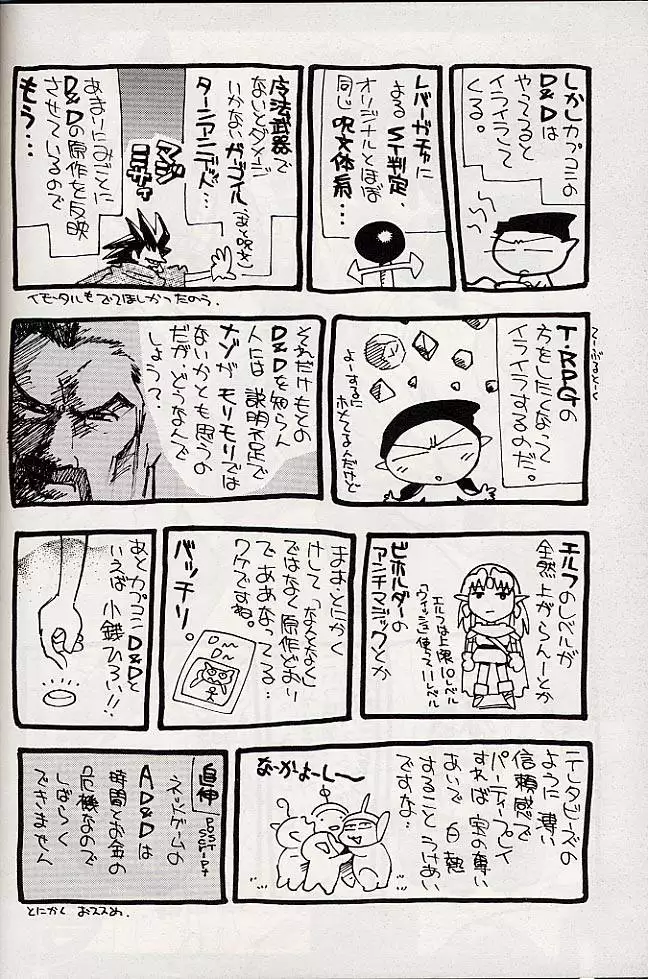 しかしカプコンの
D&Dは
やってると
イライラして
くる。
レバーガチャに
よるST判定、
オリジナルとほぼ
同じ呪文体系…
魔法武器で
ないとダメージ
いかないガーゴイル(まと呪文)
ターンアンデッド…
マジ
ニティ
あまーりにみごとに
D&Dの原作を反映
させているので
もう…
イモータルもでてほしかったのう.
てーぶるとーく
T・RPGの
方をしたくなって
イライラするのだ。
よーするに
ホメてるんだけど
それだけもとの
D&Dを知らん
人には説明不足で
ナゾがモリモリでは
ないかとも思うの
だが、どうなんで
しょうて.
エルフのレベルが
全然上がらんーとか
エルフは上限10レベル
「ウィッシュ」使って11レベル
ビホルダーの
アンチマジックとか
まあ・とにかく
けして「なんとなく」
ではなく原作どおり
でああなってる…
ワケですね。
バッチリ。
D～
D～
あとカプコンD&Dと
いえば小銭ひろい!!
テレタビーズの
ように薄い
信頼感で
パーティープレイ
すれば宝の奪い
あいで白熱
することうけあい
ですな…
なーかよーし～
追伸
POST
SCRIPT
ネットゲームの
AD&Dは
時間とお金の
危機なので
しばらく
できません
とにかくおススメ.